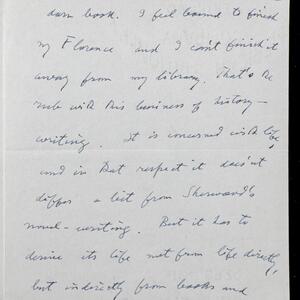 darn book. I feel bound to finish
my Florence and I can't finish it
away from my library. That's the
rub with this business of history-
writing. It is concerned with life,
and in that respect it doesn't
differ a bit from Sherwood's
novel-writing. But it has to
derive its life not from life directly,
but indirectly from books and